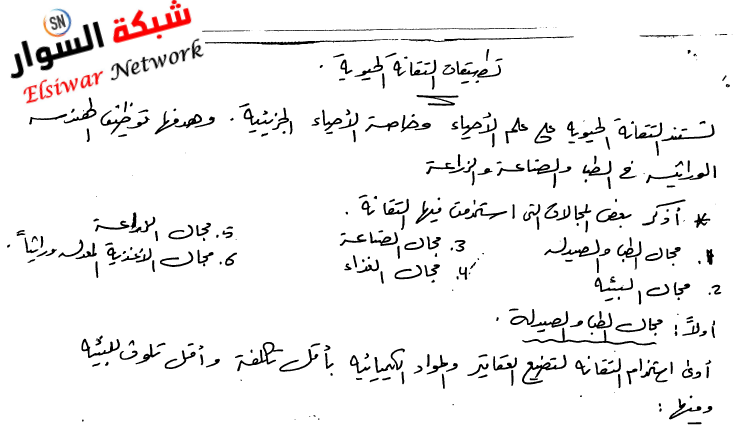 شبكة السوار
SN
Elsiwar Network
تطبيقات التقانة الحيوية .
تستند التقانة الحيوية على علم الأحياء وخاصة الأحياء الجزيئية . وهدفها توظيف الهندسة
الوراثية في الطب والصناعة والزراعة
* أذكر بعض المجالات التي استخدمت فيها التقانة .
1. مجال الطب والصيدلة 3. مجال الصناعة 5. مجال الزراعة
2. مجال البيئة 4. مجال الغذاء 6. مجال الأغذية المعدلة وراثياً .
أولاً : مجال الطب والصيدلة .
أدى استخدام التقانة لتصنيع العقاقير والمواد الكيميائية بأقل تكلفة وأقل تلوث للبيئة
ومنها :